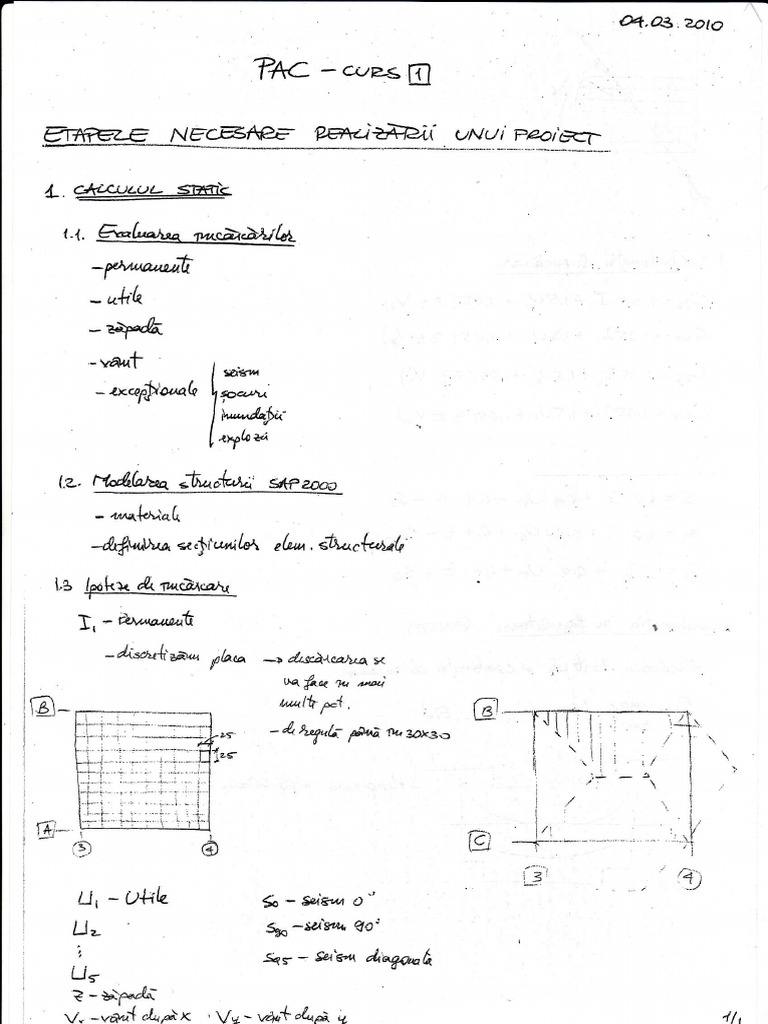 04.03.2010
PAC – CURS 1
ETAPELE NECESARE REALIZĂRII UNUI PROIECT
1. CALCULUL STATIC
1.1. Evaluarea încărcărilor
- permanente
- utile
- zăpadă
- vânt
- excepționale
seism
șocuri
inundații
explozii
1.2. Modelarea structurii SAP2000
- materiale
- definirea secțiunilor elem. structurale
1.3 Ipoteze de încărcare
I1 - Permanente
- discretizăm placa → descărcarea se
va face în mai
multe pct.
- de regulă până în 30x30
B
25
25
A
3 4
B
C
3 4
U1 - Utile
U2
⋮
U5
Z - zăpadă
Vx - vânt după x Vy - vânt după y
S0 - seism 0°
S90 - seism 90°
S45 - seism diagonală
1/1